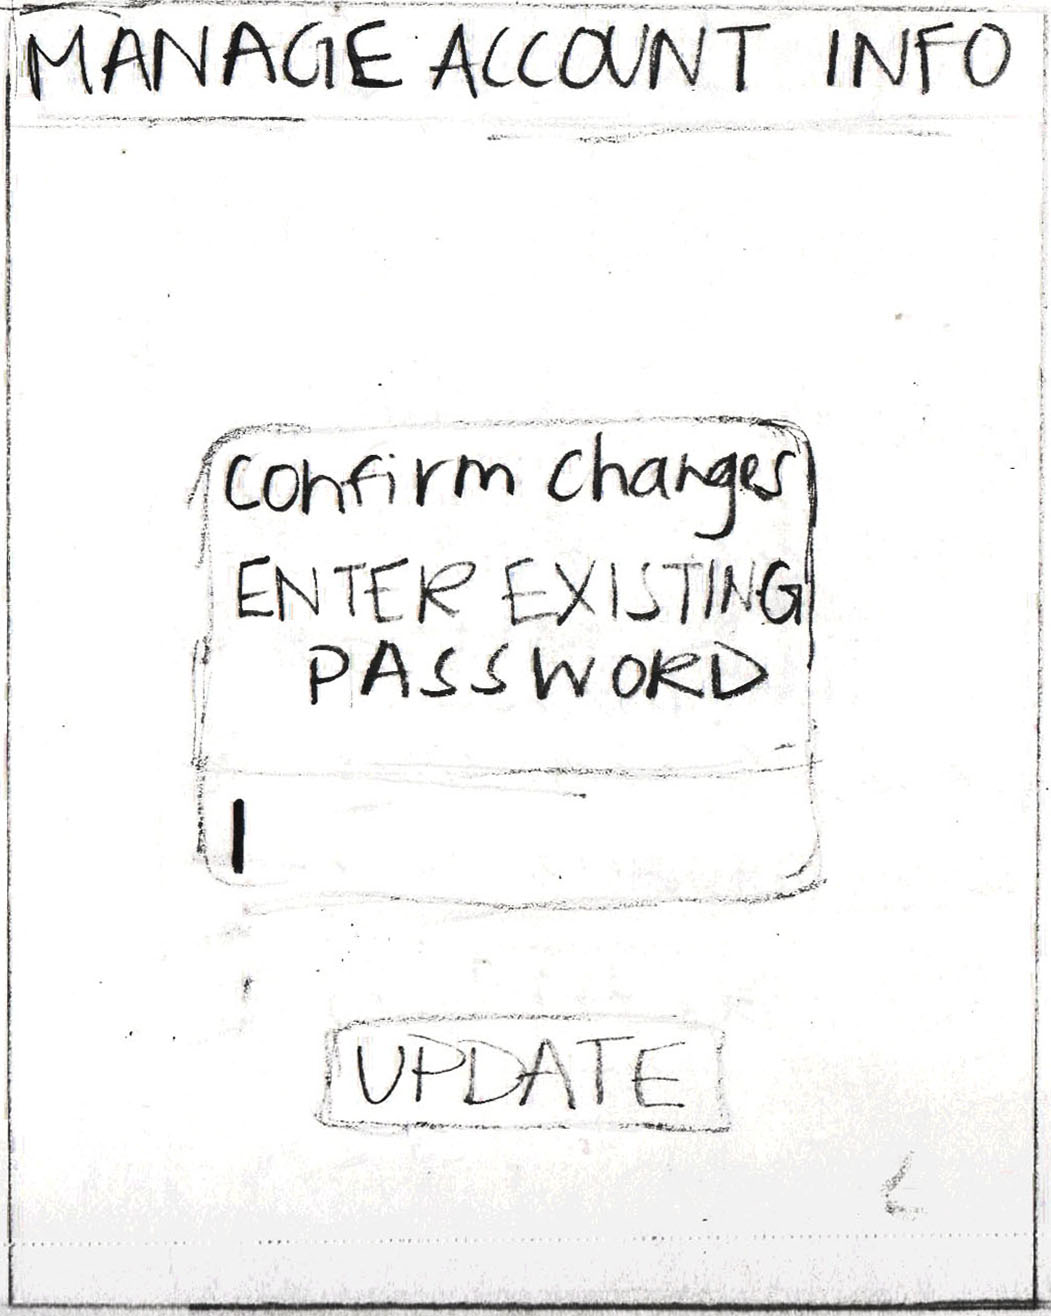 MANAGE ACCOUNT INFO
Confirm changes
ENTER EXISTING
PASSWORD
UPDATE